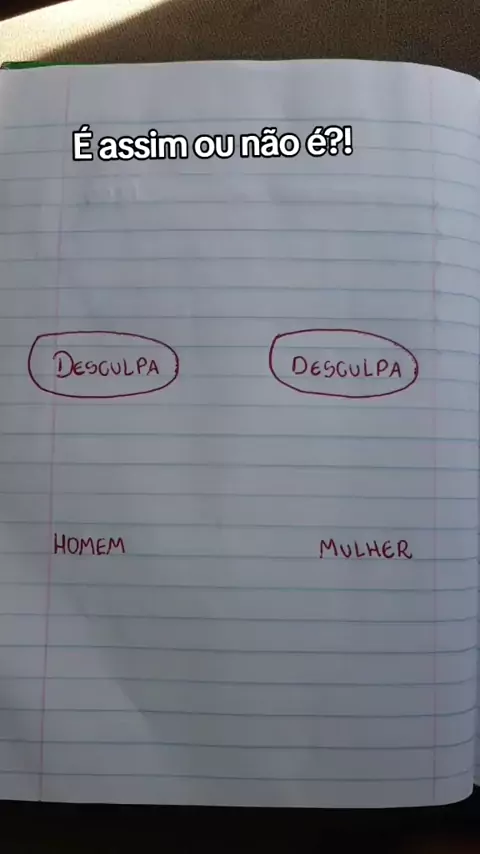 É assim ou não é?!
DESCULPA DESCULPA
HOMEM MULHER